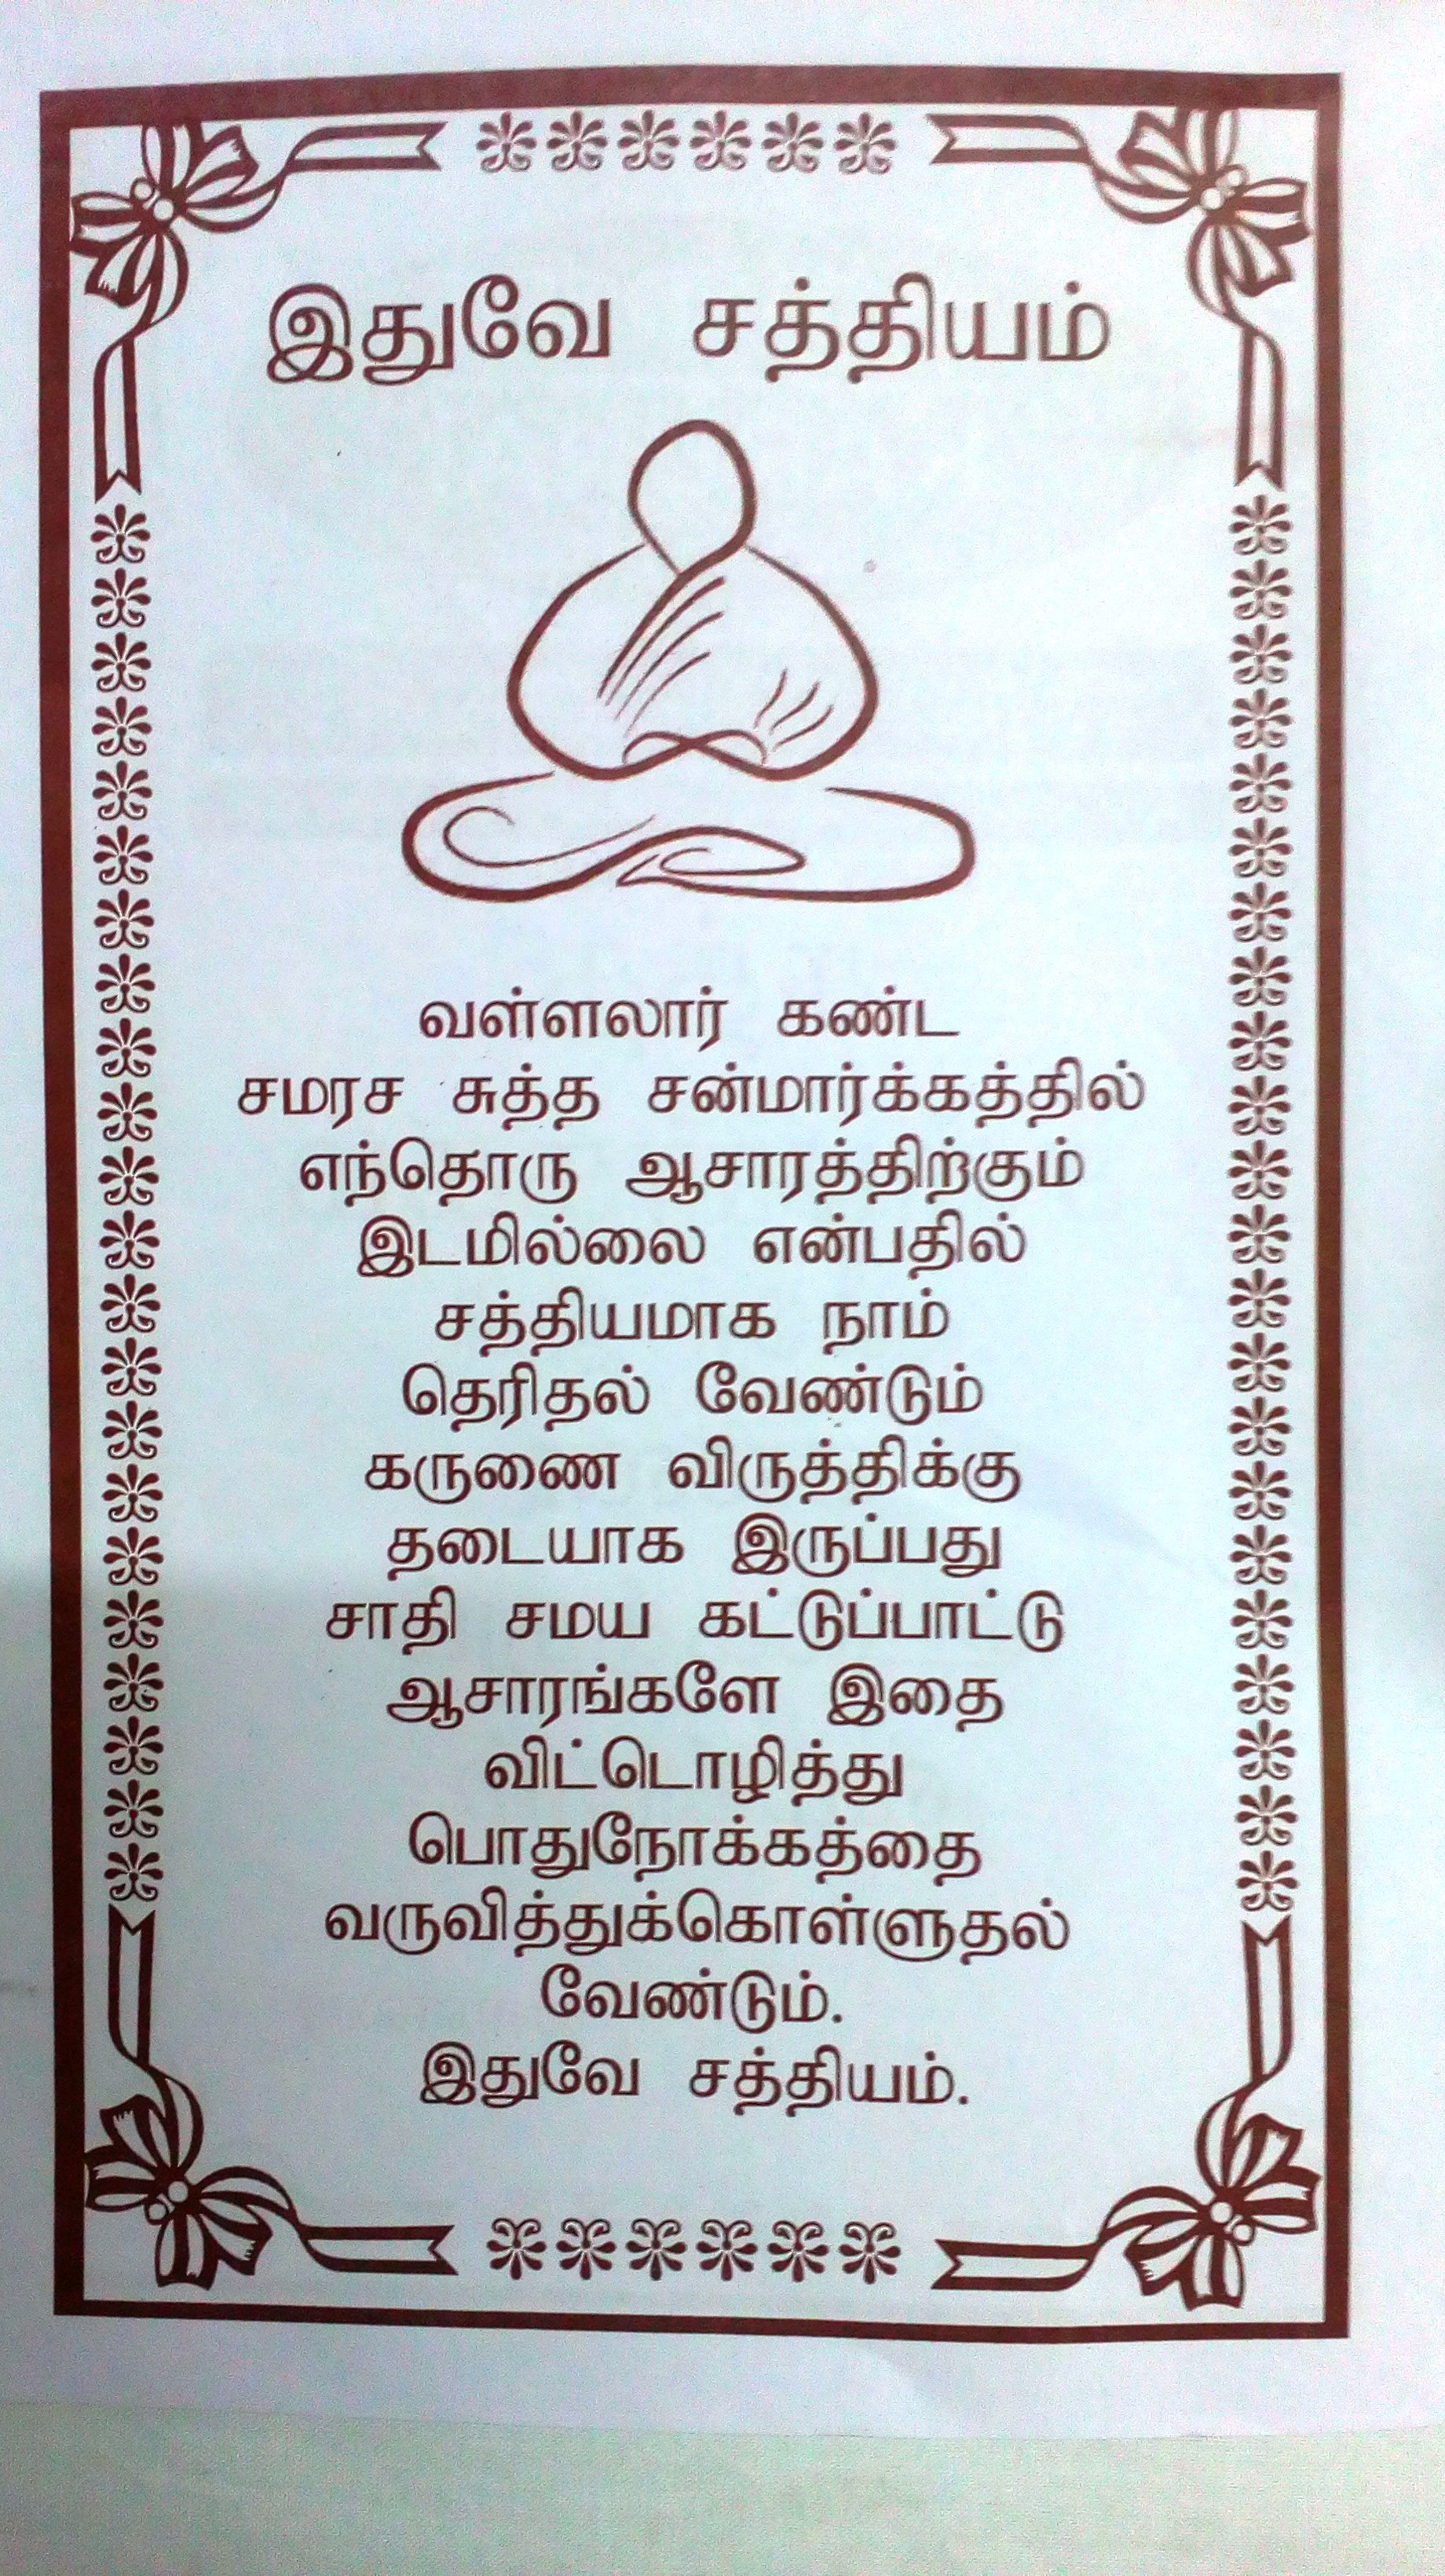 இதுவே சத்தியம்
வள்ளலார் கண்ட
சமரச சுத்த சன்மார்க்கத்தில்
எந்தொரு ஆசாரத்திற்கும்
இடமில்லை என்பதில்
சத்தியமாக நாம்
தெரிதல் வேண்டும்
கருணை விருத்திக்கு
தடையாக இருப்பது
சாதி சமய கட்டுப்பாட்டு
ஆசாரங்களே இதை
விட்டொழித்து
பொதுநோக்கத்தை
வருவித்துக்கொள்ளுதல்
வேண்டும்.
இதுவே சத்தியம்.